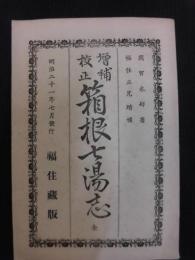 間宮永好著
福住正兄増補
増補
校正
箱根七湯志
全
明治二十一年七月發行
福住藏版